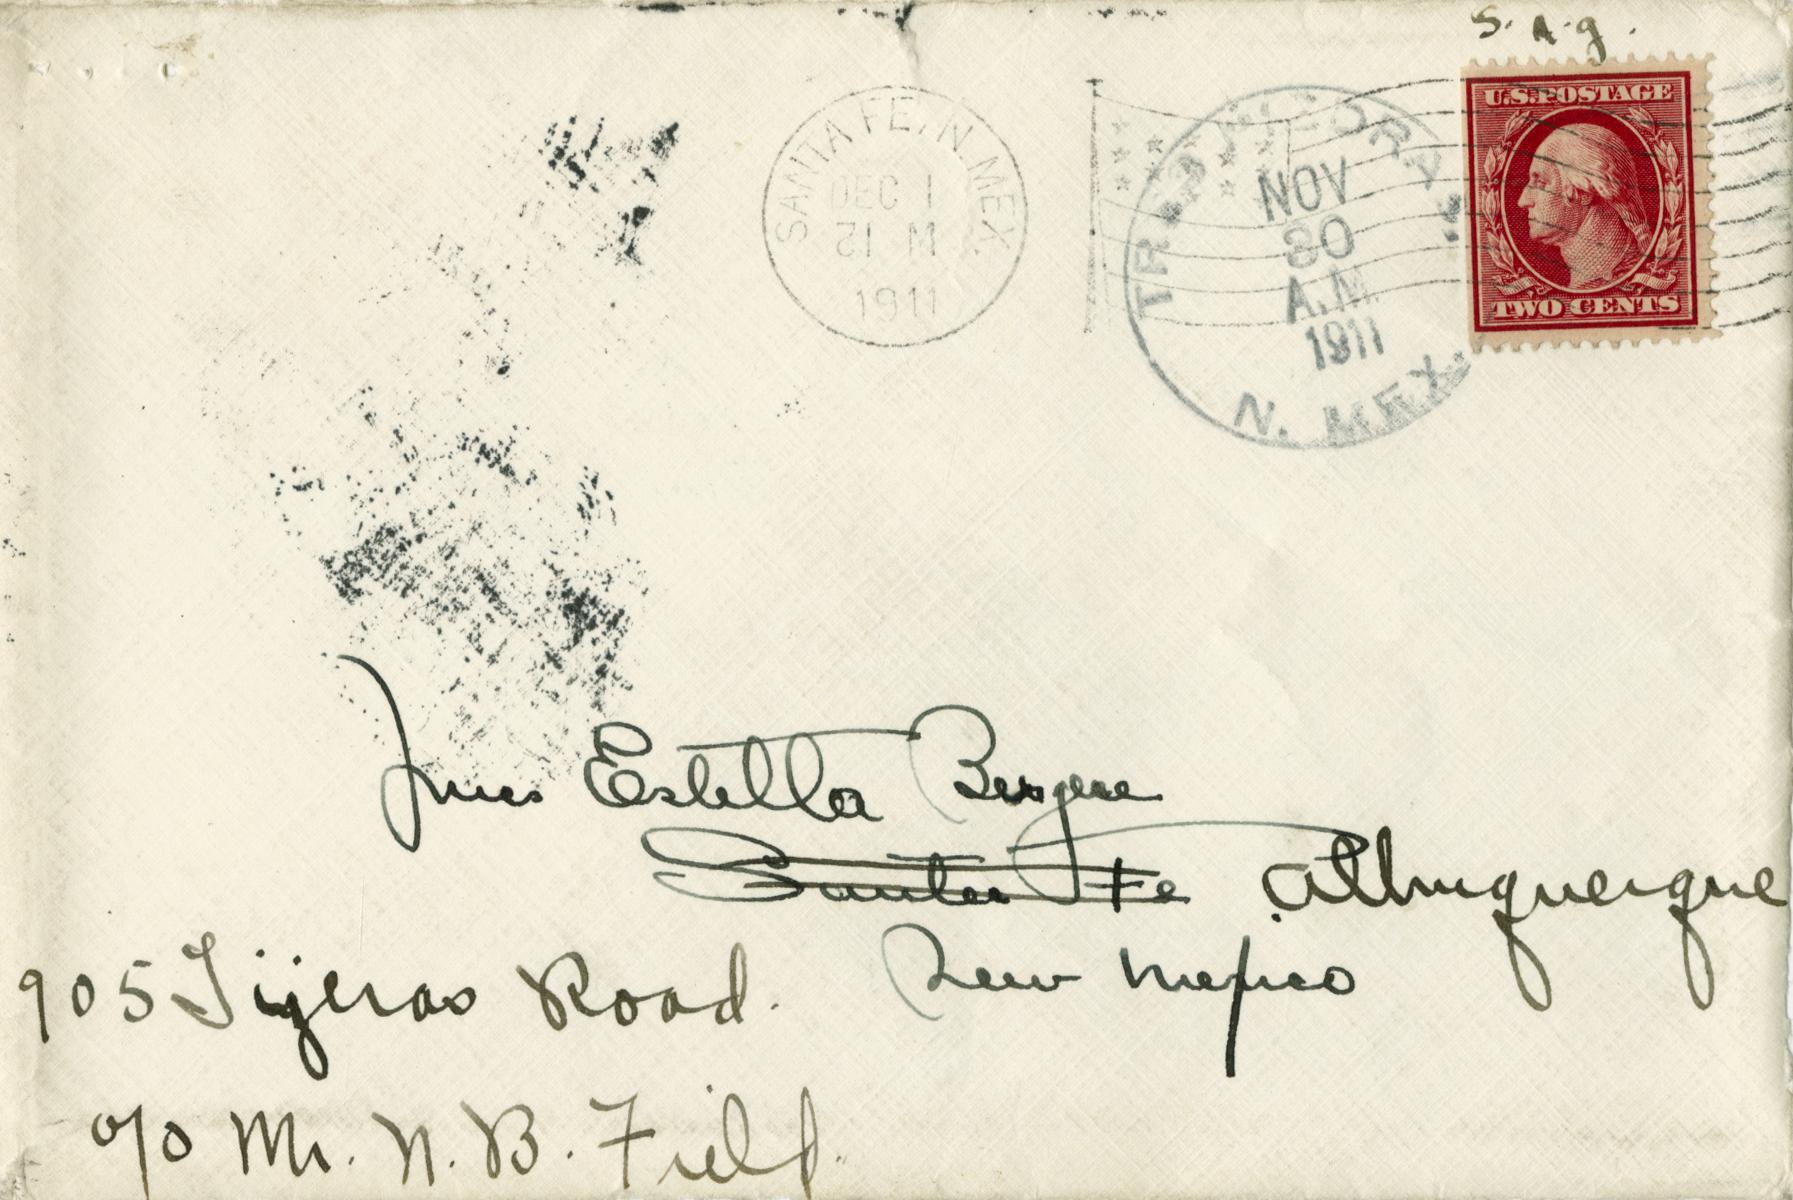 S. A. G.
U.S. POSTAGE
TWO CENTS
SANTA FE, N. MEX.
DEC 1
1911
NOV
30
A.M.
1911
N. MEX.
Miss Estella Bergere
Santa Fe Albuquerque
New Mexico
905 Tijeras Road.
c/o Mr. N. B. Field.